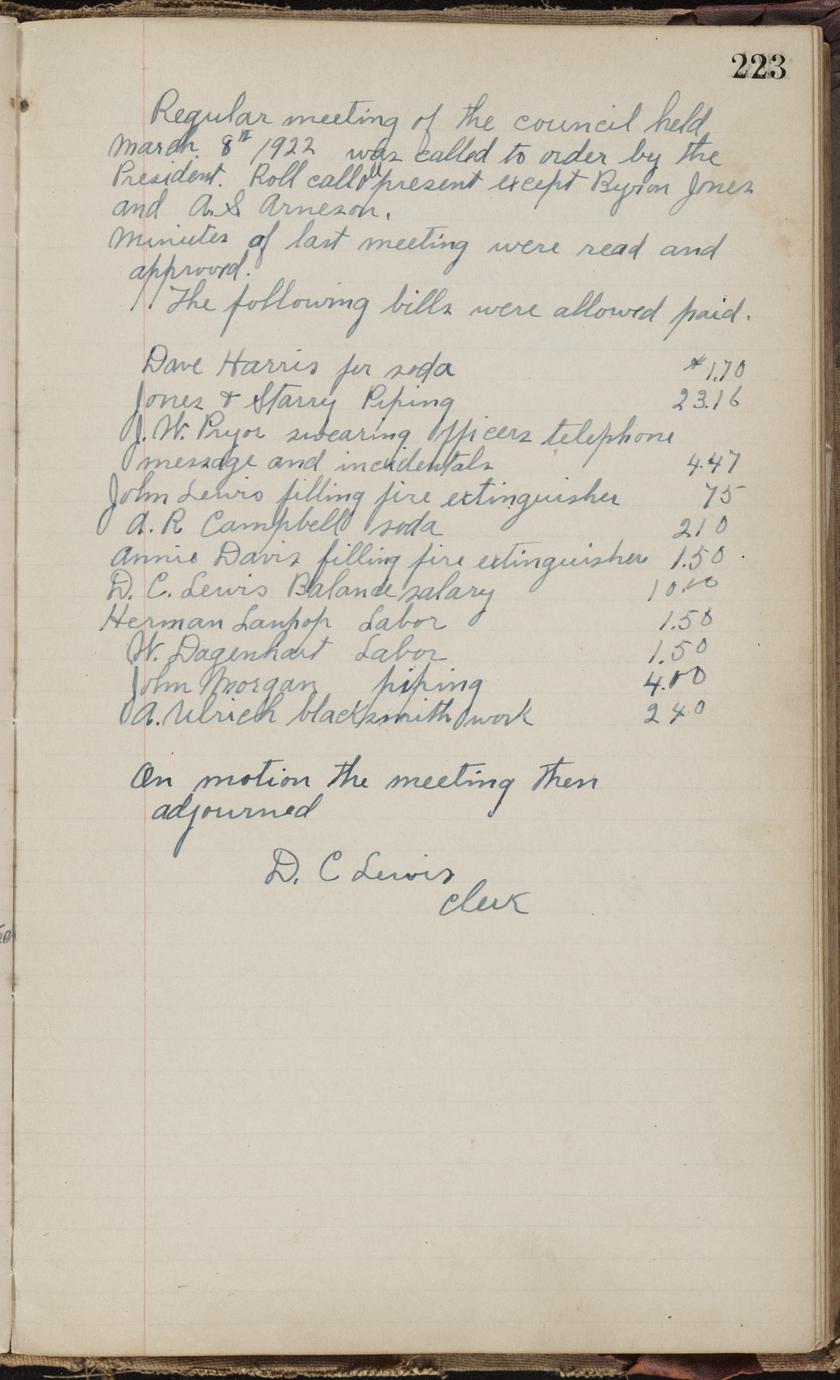 223
Regular meeting of the council held
March 8th 1922 was called to order by the
President. Roll call all present except Byron Jones
and A.S Arneson.
Minutes of last meeting were read and
approved.
The following bills were allowed paid.
Dave Harris for soda $1.70
Jones & Starry Piping 23.16
J.W. Pryor swearing officers telephone
message and incidentals 4.47
John Lewis filling fire extinguisher 75
A.R Campbell soda 210
Annie Davis filling fire extinguisher 1.50
D. C. Lewis Balance salary 10.00
Herman Labor 1.50
W. Dagenhart Labor 1.50
John Morgan piping 4.00
A. Ulrich blacksmith work 240
On motion the meeting then
adjourned
D. C Lewis
Clerk